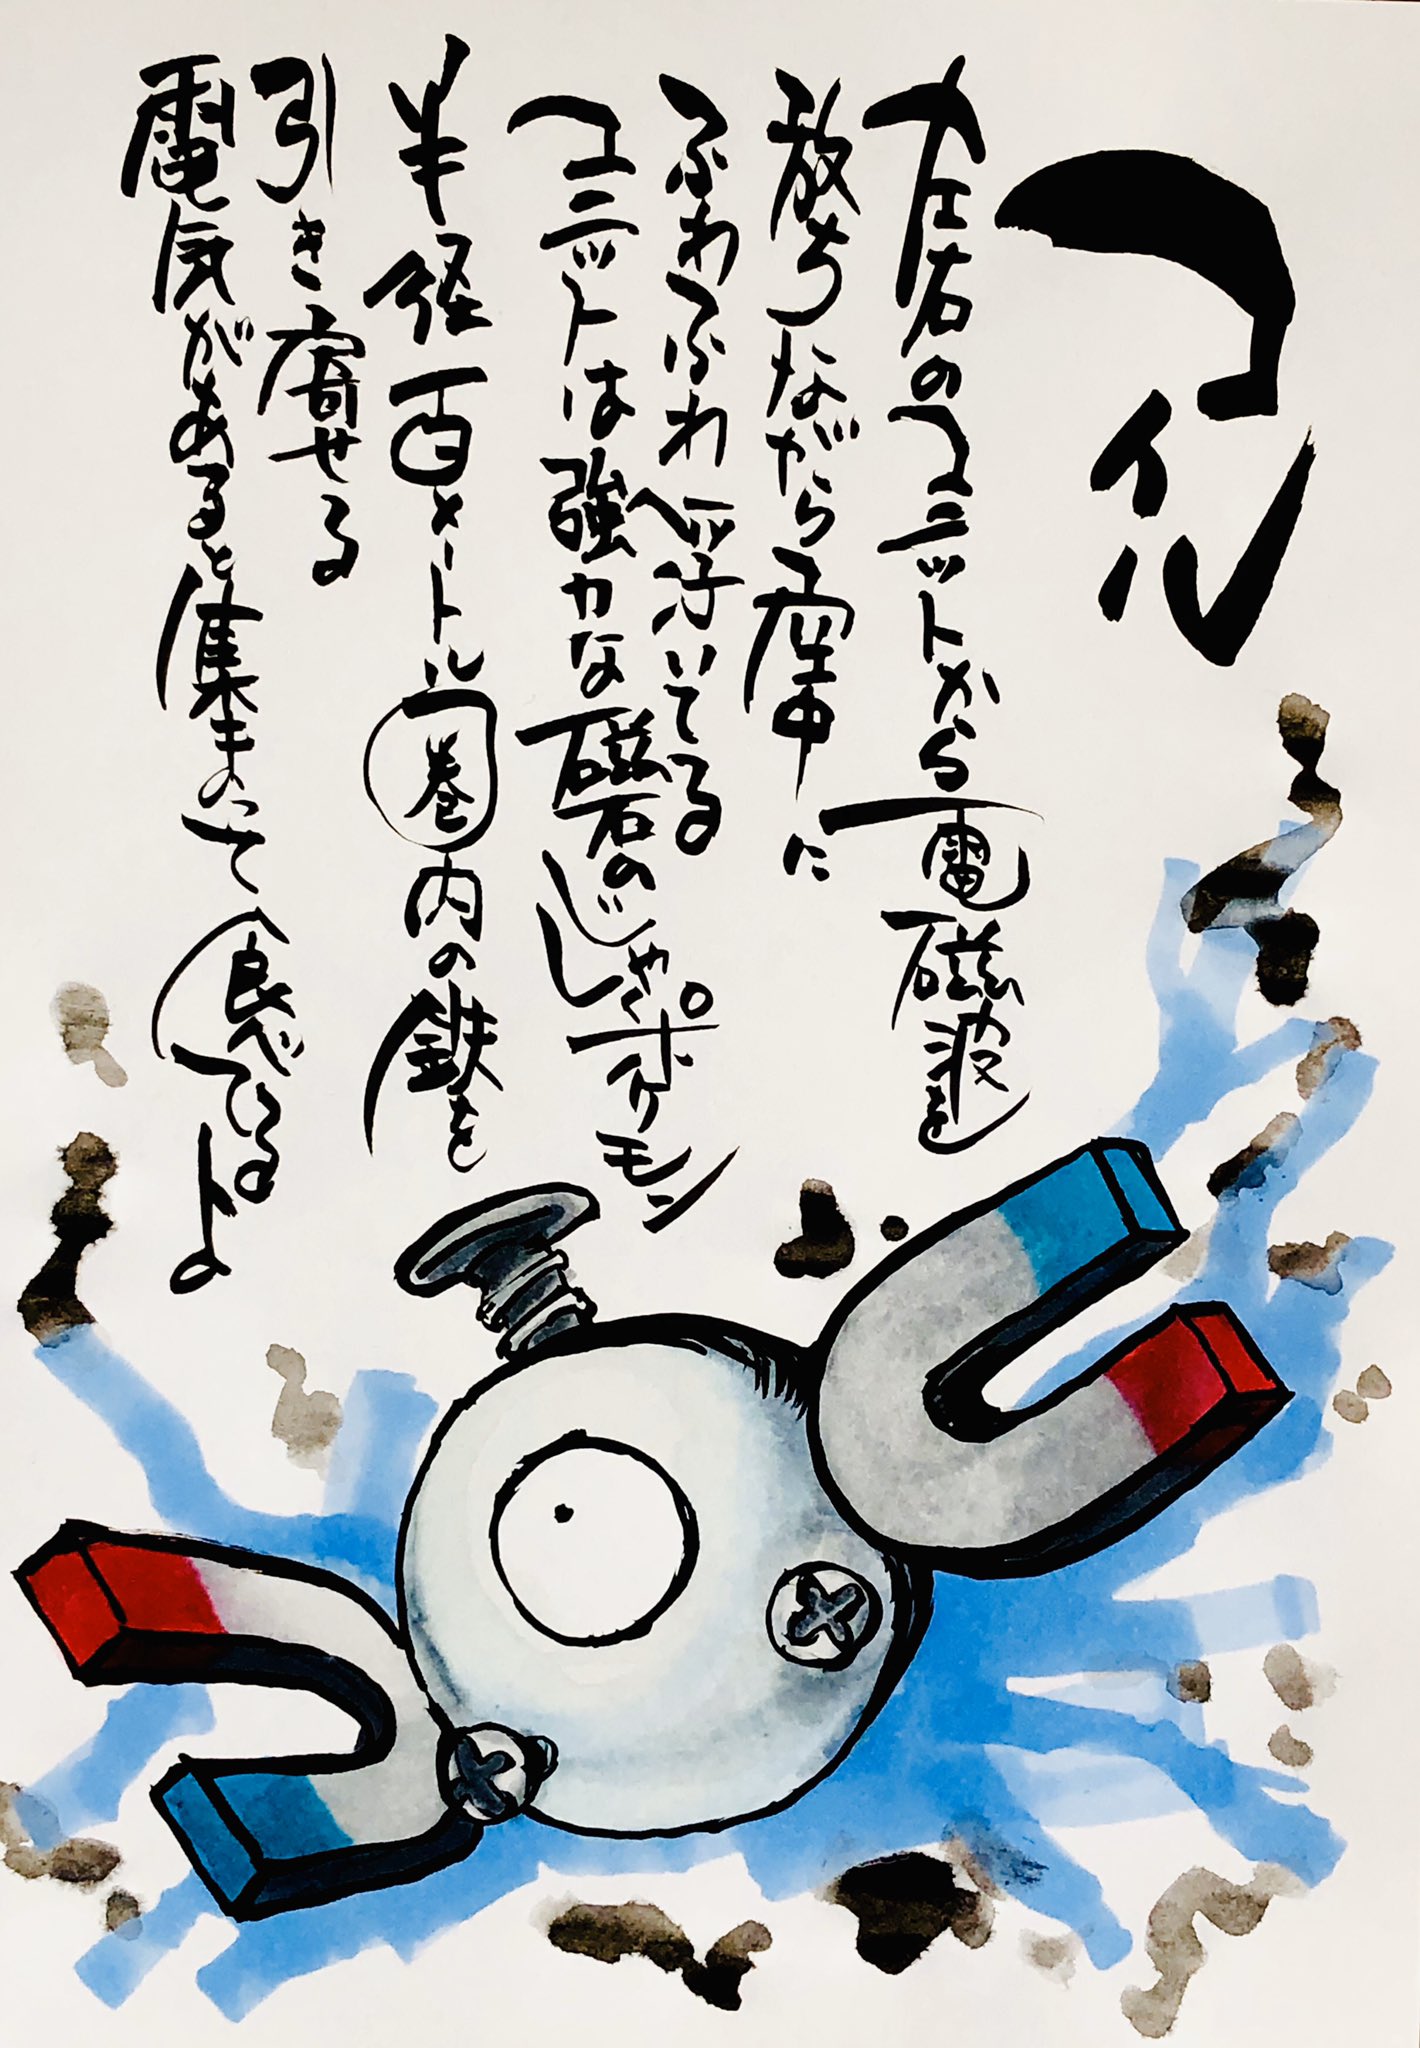 コイル
左右のユニットから電磁波を
放ちながら空中に
ふわふわ浮いてる
ユニットは強力な磁石のじゃ。ポケモン
半径百メートル圏内の鉄を
引き寄せる
電気があると集まって食べてるよ